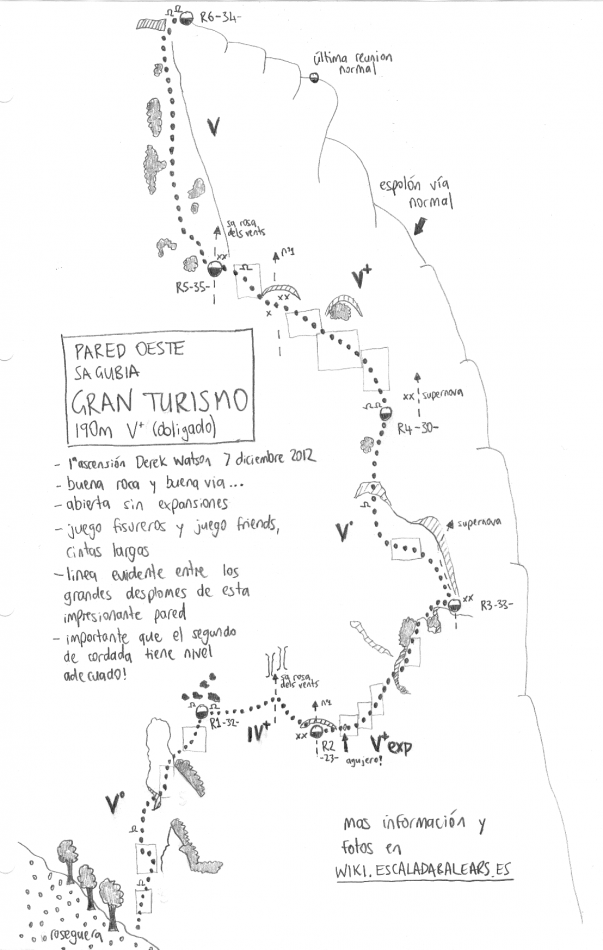 R6-34-
última reunion
normal
V
espolón vía
normal
sa rosa
dels vents
nº1
V+
R5-35-
PARED OESTE
SA GUBIA
GRAN TURISMO
190m V+ (obligado)
xx supernova
R4-30-
- 1ª ascensión Derek Watson 7 diciembre 2012
- buena roca y buena via...
- abierta sin expansiones
- juego fisureros y juego friends,
cintas largas
- linea evidente entre los
grandes desplomes de esta
impresionante pared
- importante que el segundo
de cordada tiene nivel
adecuado!
V°
supernova
xx
R3-33-
sa rosa
dels vents
R1-32-
IV+
xx
R2
-23-
V+ exp
agujero!
V°
mas información y
fotos en
WIKI.ESCALADABALEARS.ES
roseguera